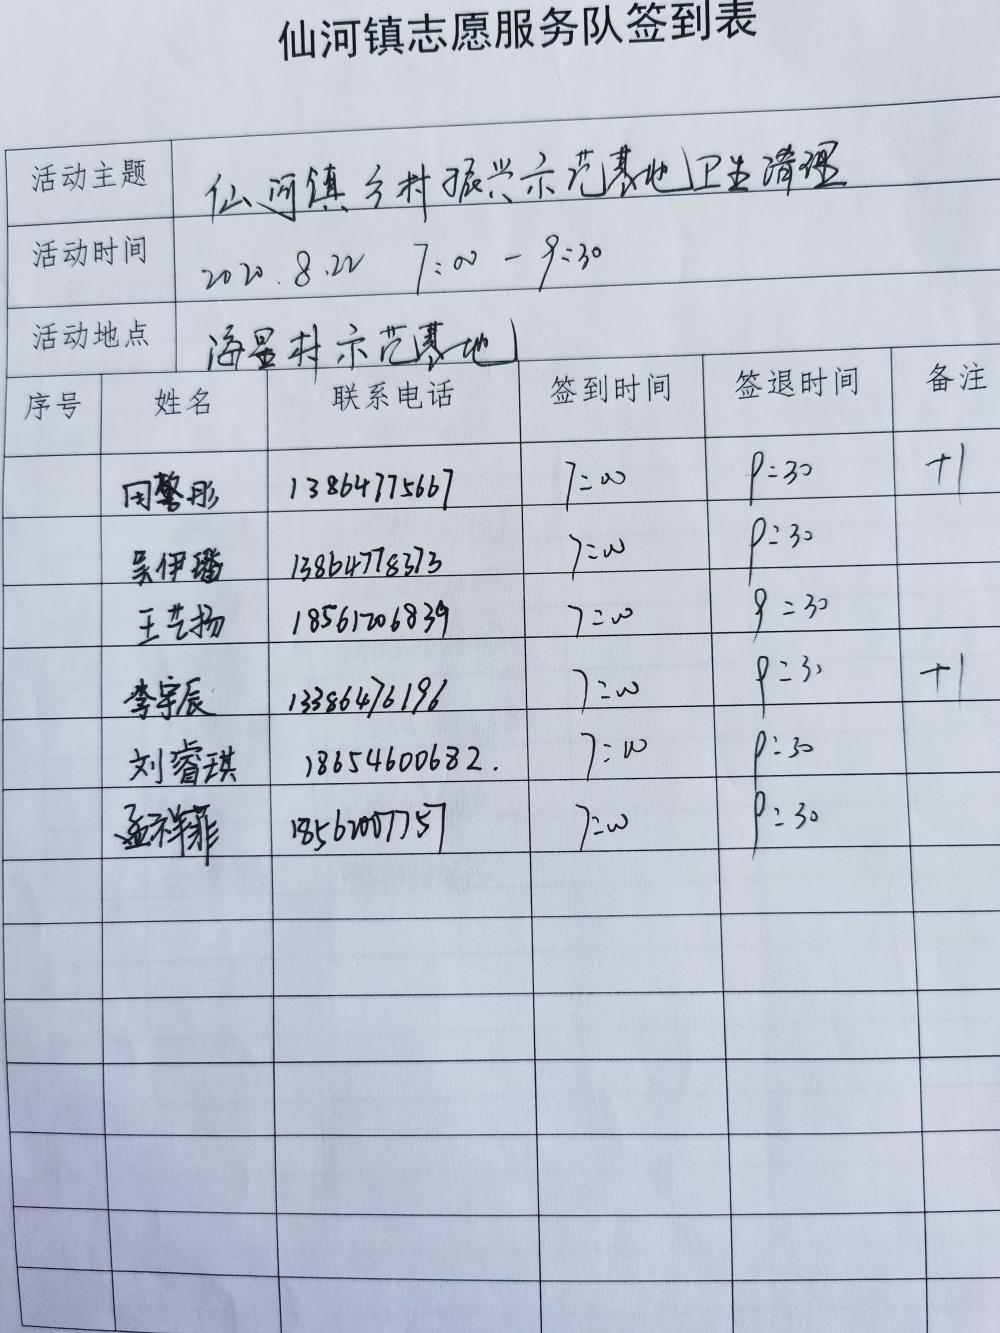 仙河镇志愿服务队签到表
活动主题 仙河镇乡村振兴示范基地卫生清理
活动时间 2020.8.22 7:00-9:30
活动地点 海星村示范基地
序号 姓名 联系电话 签到时间 签退时间 备注
周馨彤 13864775667 7:00 9:30 +1
吴伊璠 13864778373 7:00 9:30
王艺扬 18561206839 7:00 9:30
李宇辰 13386476196 7:00 9:30 +1
刘睿琪 18654600682. 7:00 9:30
孟祥菲 18562007757 7:00 9:30